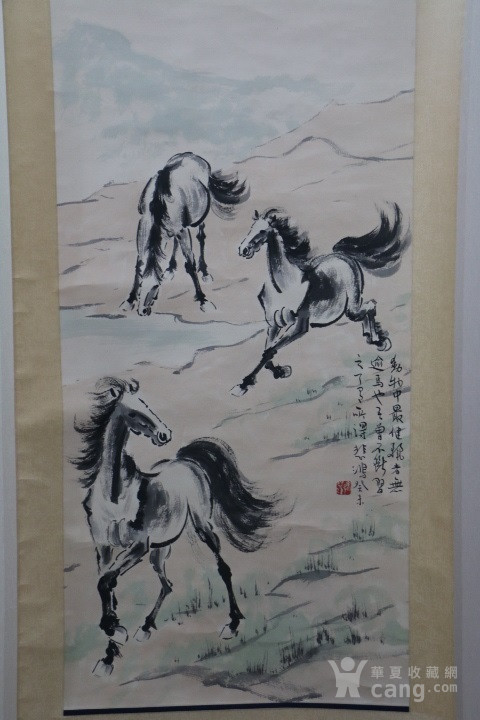 動物中最健驍者無
逾馬也吾曾不斷習
之所得悲鴻癸未
華夏收藏網
cang.com